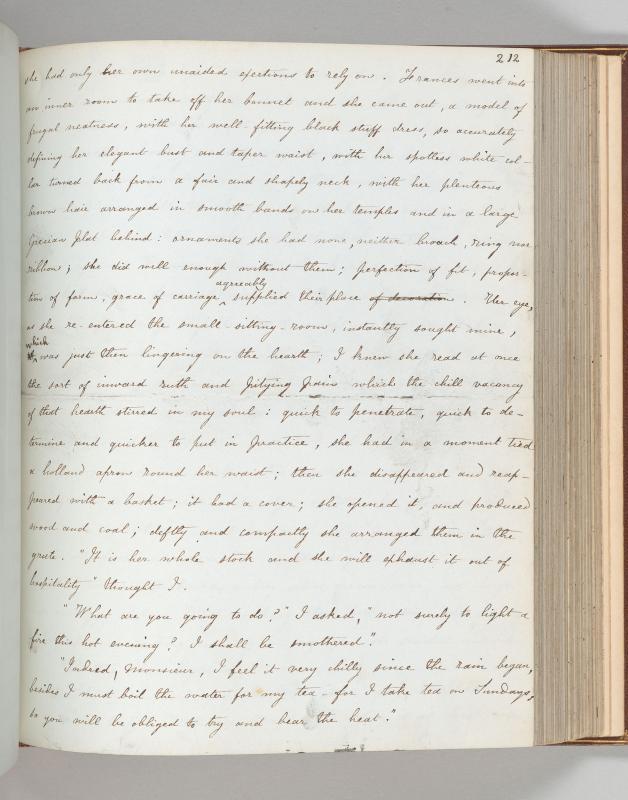 212
she had only her own unaided exertions to rely on. Frances went into
an inner room to take off her bonnet and she came out, a model of
frugal neatness, with her well-fitting black stuff dress, so accurately
defining her elegant bust and taper waist, with her spotless white col-
lar turned back from a fair and shapely neck, with her plenteous
brown hair arranged in smooth bands on her temples and in a large
Grecian plat behind: ornaments she had none, neither broach, ring nor
ribbon; she did well enough without them; perfection of fit, propor-
agreeably
tion of form, grace of carriage, supplied their place of decoration. Her eye,
as she re-entered the small sitting-room, instantly sought mine,
which
was just then lingering on the hearth; I knew she read at once
the sort of inward ruth and pitying pain which the chill vacancy
of that hearth stirred in my soul: quick to penetrate, quick to de-
termine and quicker to put in practice, she had in a moment tied
a holland apron round her waist; then she disappeared and reap-
peared with a basket; it had a cover; she opened it, and produced
wood and coal; deftly and compactly she arranged them in the
grate. "It is her whole stock and she will exhaust it out of
hospitality" thought I.
"What are you going to do?" I asked, "not surely to light a
fire this hot evening? I shall be smothered".
"Indeed, Monsieur, I feel it very chilly since the rain began,
besides I must boil the water for my tea - for I take tea on Sundays,
so you will be obliged to try and bear the heat."